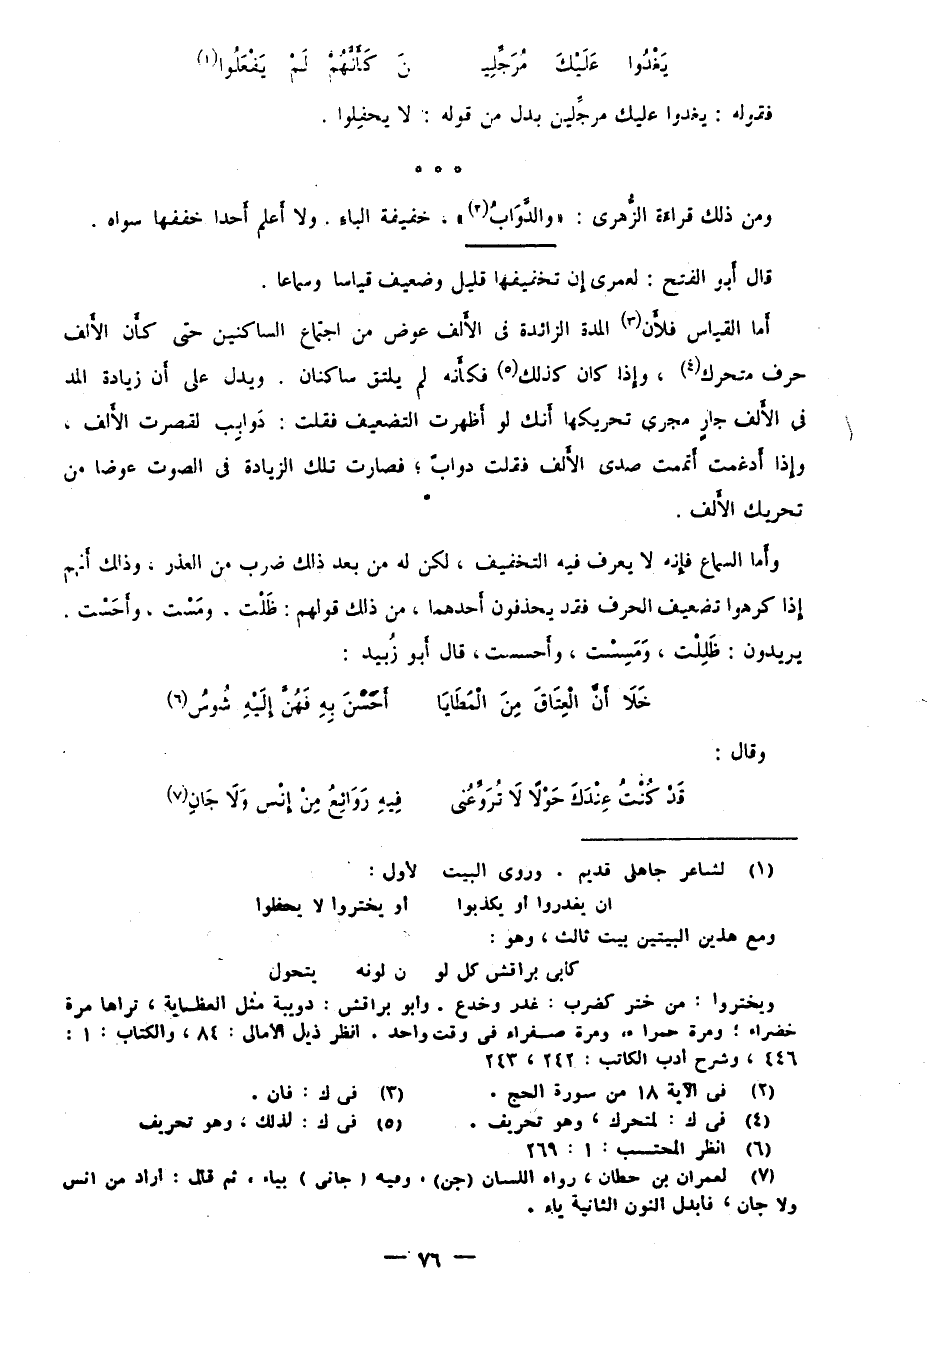 يَغْدُوا عَلَيْكَ مُرَجَّلِيـ نَ كَأَنَّهُمْ لَمْ يَفْعَلُوا(١)
فقوله : يغدوا عليك مرجَّلين بدل من قوله : لا يحفِلوا .
٥ ٥ ٥
ومن ذلك قراءة الزُّهرى : «والدَّوَابُ(٢)» ، خفيفة الباء . ولا أعلم أحدا خففها سواه .
قال أبو الفتح : لعمرى إن تخفيفها قليل وضعيف قياسا وسماعا .
أما القياس فلأن(٣) المدة الزائدة فى الألف عوض من اجتماع الساكنين حتى كأن الألف
حرف متحرك(٤) ، وإذا كان كذلك(٥) فكأنه لم يلتق ساكنان . ويدل على أن زيادة المد
فى الألف جارٍ مجرى تحريكها أنك لو أظهرت التضعيف فقلت : دَوابِب لقصرت الألف ،
وإذا أدغمت أتممت صدى الألف فقلت دوابّ ؛ فصارت تلك الزيادة فى الصوت عوضا من
تحريك الألف .
وأما السماع فإنه لا يعرف فيه التخفيف ، لكن له من بعد ذلك ضرب من العذر ، وذلك أنهم
إذا كرهوا تضعيف الحرف فقد يحذفون أحدهما ، من ذلك قولهم : ظَلْت . ومَسْت ، وأحَسْت .
يريدون : ظَلِلْت ، وَمَسِسْت ، وأحسست ، قال أبو زُبيد :
خَلَا أَنَّ الْعِتَاقَ مِنَ الْمَطَايَا أَحَسْنَ بِهِ فَهُنَّ إِلَيْهِ شُوسُ(٦)
وقال :
قَدْ كُنْتُ عِنْدَكَ حَوْلًا لَا تُرَوِّعُنِى فِيهِ رَوَائِعُ مِنْ إِنْس وَلَا جَانِ(٧)
(١) لشاعر جاهلى قديم . وروى البيت لأول :
ان يغدروا أو يكذبوا أو يختروا لا يحفلوا
ومع هذين البيتين بيت ثالث ، وهو :
كابى براقش كل لو ن لونه يتحول
ويختروا : من ختر كضرب : غدر وخدع . وأبو براقش : دويبة مثل العظاية ، تراها مرة
خضراء ؛ ومرة حمراء ، ومرة صفراء فى وقت واحد . انظر ذيل الأمالى : ٨٤ ، والكتاب : ١ :
٤٤٦ ، وشرح أدب الكاتب : ٢٤٢ ، ٢٤٣
(٢) فى الآية ١٨ من سورة الحج . (٣) فى ك : فان .
(٤) فى ك : لمتحرك ، وهو تحريف . (٥) فى ك : لذلك ، وهو تحريف
(٦) انظر المحتسب : ١ : ٢٦٩
(٧) لعمران بن حطان ، رواه اللسان (جن) . وفيه ( جانى ) بياء ، ثم قال : اراد من انس
ولا جان ، فأبدل النون الثانية ياء .
— ٧٦ —